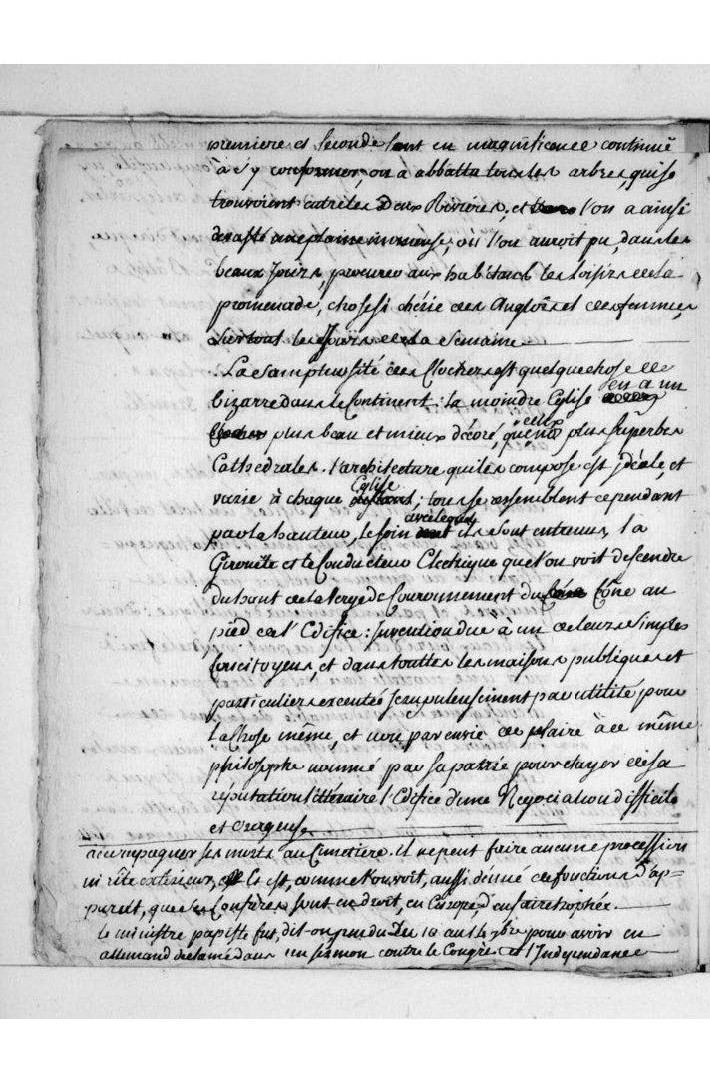 premiere et seconde sont en magnificence continué
à s'y conformer, on a abbattu tous les arbres, qui se
trouvoient entre les Deux Rivieres, et l'on a ainsi
devasté une plaine immense, où l'on auroit pu, dans les
beaux Jours, procurer aux habitans les loisirs de la
promenade, chose si chérie des Anglois et des femmes
surtout les Jours de la Semaine
La somptuosité des Clochers est quelque chose de
bizarre dans le Continent : la moindre Eglise en a un
plus beau et mieux décoré, que ceux plus superbes
Cathedrales. l'architecture qui les compose est idéale, et
varie à chaque Eglise ; tous se ressemblent cependant
par la hauteur, le soin avec lequel ils sont entretenus, la
Girouëte et le Conducteur Electrique que l'on voit descendre
du haut de la verge de Couronnement du Cône au
pied de l'Edifice : Invention due à un de leurs simples
Concitoyens, et dans toutes les maisons publiques et
particulieres executée scrupuleusement par utilité pour
la Chose même, et non par envie de plaire à ce même
philosophe nommé par sa patrie pour etayer de sa
réputation littéraire l'Edifice d'une Negociation difficile
et orageuse
accompagner ses morts au Cimetière. il ne peut faire aucune procession
ni rite exterieur, et est, comme l'on voit, aussi dénué de fonctions d'ap=
parat, que ses Confrères sont en droit, en Europe, d'en faire trophée.
le ministre papiste fut, dit on, pendu Du 10 au 14 7bre pour avoir en
allemand declamé dans un sermon contre le Congrès et l'Independance